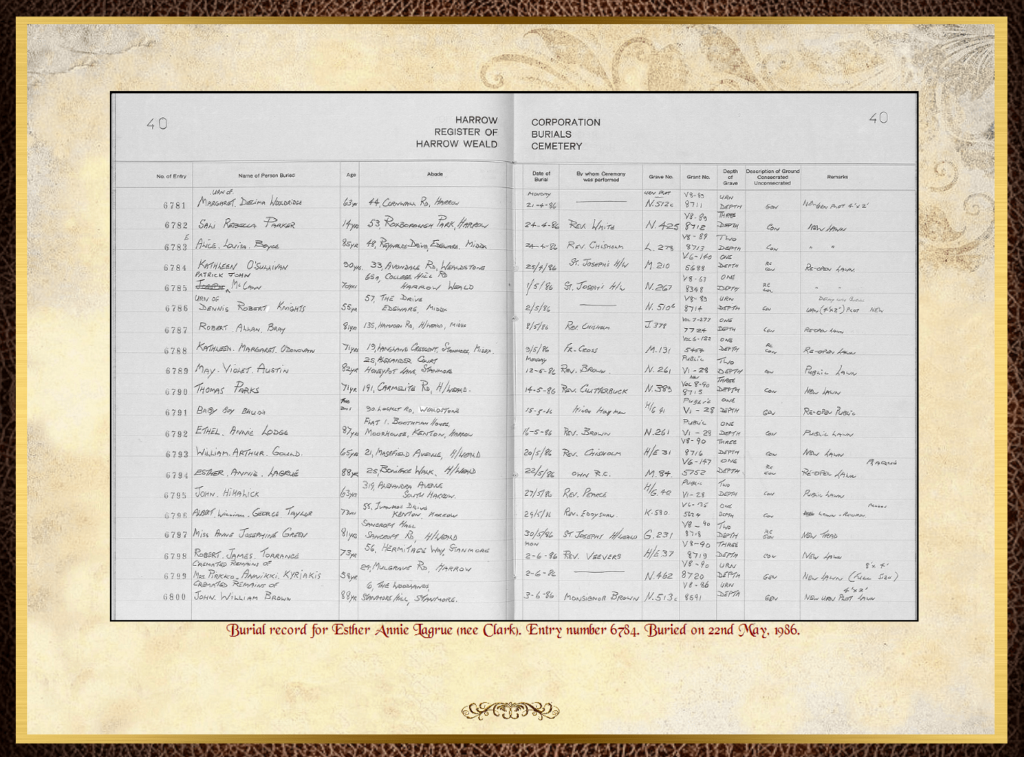 40
HARROW CORPORATION
REGISTER OF BURIALS
HARROW WEALD CEMETERY
40
No. of Entry Name of Person Buried Age Abode Date of Burial By whom Ceremony was performed Grave No. Grant No. Depth of Grave Description of Ground Consecrated Unconsecrated Remarks
URN OF
6781 MARGARET DELINA WOOLRIDGE 63yr 44, CORNWALL RD, HARROW MONDAY 21-4-86 N.572c V8-89 8711 URN DEPTH
6782 REBECCA PARKER 14yr 53, ROXBOROUGH PARK, HARROW 24-4-86 REV. WHITE N.425 V8-89 8712 THREE DEPTH CON NEW LAWN
6783 ALICE. LOUISA. BOYCE 48, DRIVE, EDGWARE. MIDDX 24-4-86 REV CHISHOLM L.279 V8-89 8713 TWO DEPTH CON " "
6784 KATHLEEN O'SULLIVAN 90yr 33, AVONDALE RD, WEALDSTONE 25/4/86 ST. JOSEPH'S H/W M.210 V6-140 5698 ONE DEPTH RE-OPEN LAWN
PATRICK JOHN
6785 McCANN 70yr COLLEGE HILL RD HARROW WEALD 1/5/86 ST. JOSEPH'S H/W N.267 V8-61 8348 ONE DEPTH
URN OF
6786 DENNIS ROBERT KNIGHTS 58yr 57, THE DRIVE EDGWARE. MIDDX 2/5/86 V8-89 8714 URN DEPTH PLOT NEW
6787 ROBERT ALLAN. BRAY 81yr HARROW, MIDDX 8/5/86 REV CHISHOLM J.378 7724 ONE DEPTH RE-OPEN LAWN
6788 KATHLEEN. MARGARET. O'DONOVAN 71yr CRESCENT, STANMORE, MIDDX. 9/5/86 FR. CROSS M.131 5454 ONE DEPTH RE-OPEN LAWN
6789 MAY. VIOLET. AUSTIN 82yr 25, ALEXANDER COURT HONEYPOT LANE STANMORE MONDAY 12-5-86 REV. BROWN N.261 PUBLIC V1-28 TWO DEPTH CON PUBLIC LAWN
6790 THOMAS PARKS 71yr 191, CARMELITE RD, H/WEALD. 14-5-86 REV. CLUTTERBUCK N.383 VOL 8-90 8715 THREE DEPTH CON NEW LAWN
6791 BABY BOY 30 LOCKET RD, WEALDSTONE 15-5-86 H/G 41 PUBLIC V1-28 ONE DEPTH RE-OPEN PUBLIC
6792 ETHEL. ANNIE LODGE 87yr FLAT 1. MOORHOUSE, KENTON, HARROW 16-5-86 REV. BROWN N.261 PUBLIC V1-28 ONE DEPTH CON PUBLIC LAWN
6793 WILLIAM. ARTHUR. GOULD. 65yr 21, MASEFIELD AVENUE, H/WEALD. 20/5/86 REV. CHISHOLM H/E 31 V8-90 8716 THREE DEPTH CON NEW LAWN
6794 ESTHER. ANNIE. LAGRUE 88yr 25, BONIFACE WALK, H/WEALD 22/5/86 OWN R.C. M.84 V6-147 5752 ONE DEPTH RE-OPEN LAWN
6795 JOHN. 63yr 319, ALEXANDRA AVENUE SOUTH HARROW. 27/5/86 REV. PEARCE H/G.40 PUBLIC V1-28 TWO DEPTH CON PUBLIC LAWN
6796 ALBERT. WILLIAM. GEORGE TAYLOR DRIVE KENTON HARROW 29/5/86 REV. K.580 ONE DEPTH CON
6797 MISS ANNE JOSEPHINE GREEN 81yr SANCROFT HALL SANCROFT RD, H/WEALD 30/5/86 ST JOSEPHS H/WEALD G.231 V8-90 8718 TWO DEPTH NEW TRAD
6798 ROBERT. JAMES. TORRANCE 73yr 56, HERMITAGE WAY, STANMORE MON 2-6-86 REV. VEEVERS H/E37 V8-90 8719 THREE DEPTH CON NEW LAWN
CREMATED REMAINS OF
6799 PIRKKO, ANNIKKI, KYRIAKIS 54yr 29, MULGRAVE RD HARROW 2-6-86 N.462 V8-90 8720 URN DEPTH GEN NEW LAWN
CREMATED REMAINS OF
6800 JOHN. WILLIAM BROWN 88yr 6, THE WOODLANDS STANMORE HILL, STANMORE. 3-6-86 MONSIGNOR BROWN N.513c V8-86 8691 URN DEPTH GEN NEW URN PLOT LAWN
Burial record for Esther Annie Lagrue (nee Clark). Entry number 6784. Buried on 22nd May, 1986.